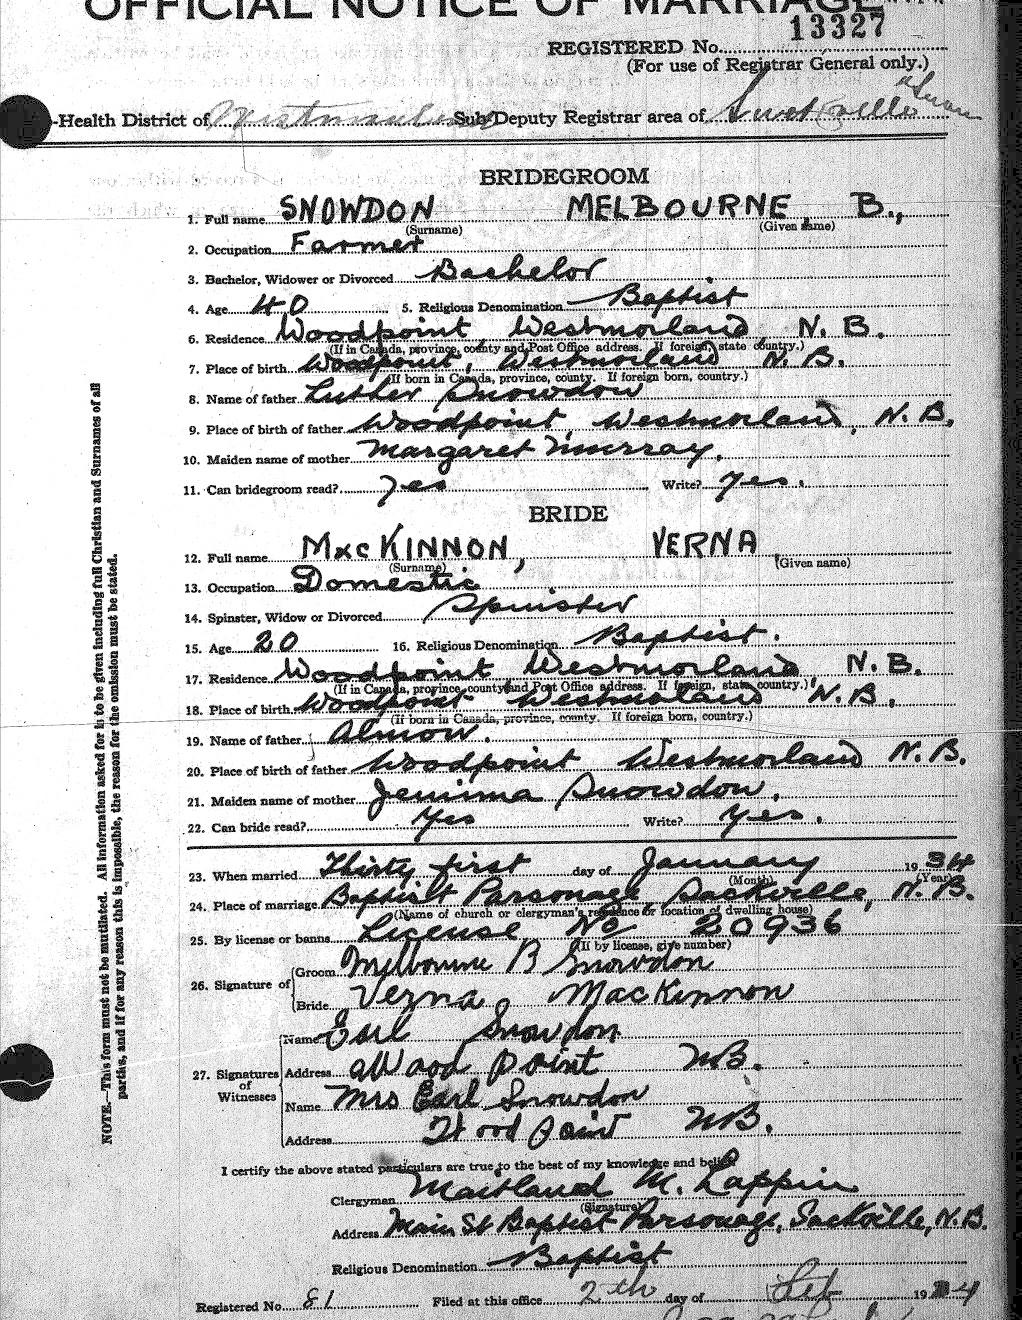 OFFICIAL NOTICE OF MARRIAGE
13327
REGISTERED No.
(For use of Registrar General only.)
-Health District of Westmorland Sub-Deputy Registrar area of Sackville
BRIDEGROOM
1. Full name SNOWDON MELBOURNE B.,
(Surname) (Given name)
2. Occupation Farmer
3. Bachelor, Widower or Divorced Bachelor
4. Age 40 5. Religious Denomination Baptist
6. Residence Woodpoint Westmorland N. B.
(If in Canada, province, county and Post Office address. If foreign, state country.)
7. Place of birth Woodpoint, Westmorland N. B.
(If born in Canada, province, county. If foreign born, country.)
8. Name of father Luther Snowdon
9. Place of birth of father Woodpoint, Westmorland, N. B.
10. Maiden name of mother Margaret Murray.
11. Can bridegroom read? yes Write? yes.
BRIDE
12. Full name MacKINNON, VERNA
(Surname) (Given name)
13. Occupation Domestic
14. Spinster, Widow or Divorced Spinster
15. Age 20 16. Religious Denomination Baptist.
17. Residence Woodpoint Westmorland N. B.
(If in Canada, province, county and Post Office address. If foreign, state country.)
18. Place of birth Woodpoint Westmorland N. B.
(If born in Canada, province, county. If foreign born, country.)
19. Name of father Almon.
20. Place of birth of father Woodpoint Westmorland N. B.
21. Maiden name of mother Jemima Snowdon.
22. Can bride read? Yes Write? yes.
23. When married Thirty first day of January 1934
(Month) (Year)
24. Place of marriage Baptist Parsonage Sackville, N. B.
(Name of church or clergyman's residence or location of dwelling house)
25. By license or banns License No 20936
(If by license, give number)
26. Signature of
Groom Melbourne B Snowdon
Bride Verna MacKinnon
27. Signatures of Witnesses
Name Earl Snowdon
Address Wood point NB.
Name Mrs Earl Snowdon
Address Wood point NB.
I certify the above stated particulars are true to the best of my knowledge and belief.
Clergyman Maitland M. Lappin
(Signature)
Address Main St Baptist Parsonage, Sackville, N. B.
Religious Denomination Baptist
Registered No. 81 Filed at this office 2th day of Feb 1934
NOTE.—This form must not be mutilated. All information asked for is to be given including full Christian and Surnames of all
parties, and if for any reason this is impossible, the reason for the omission must be stated.